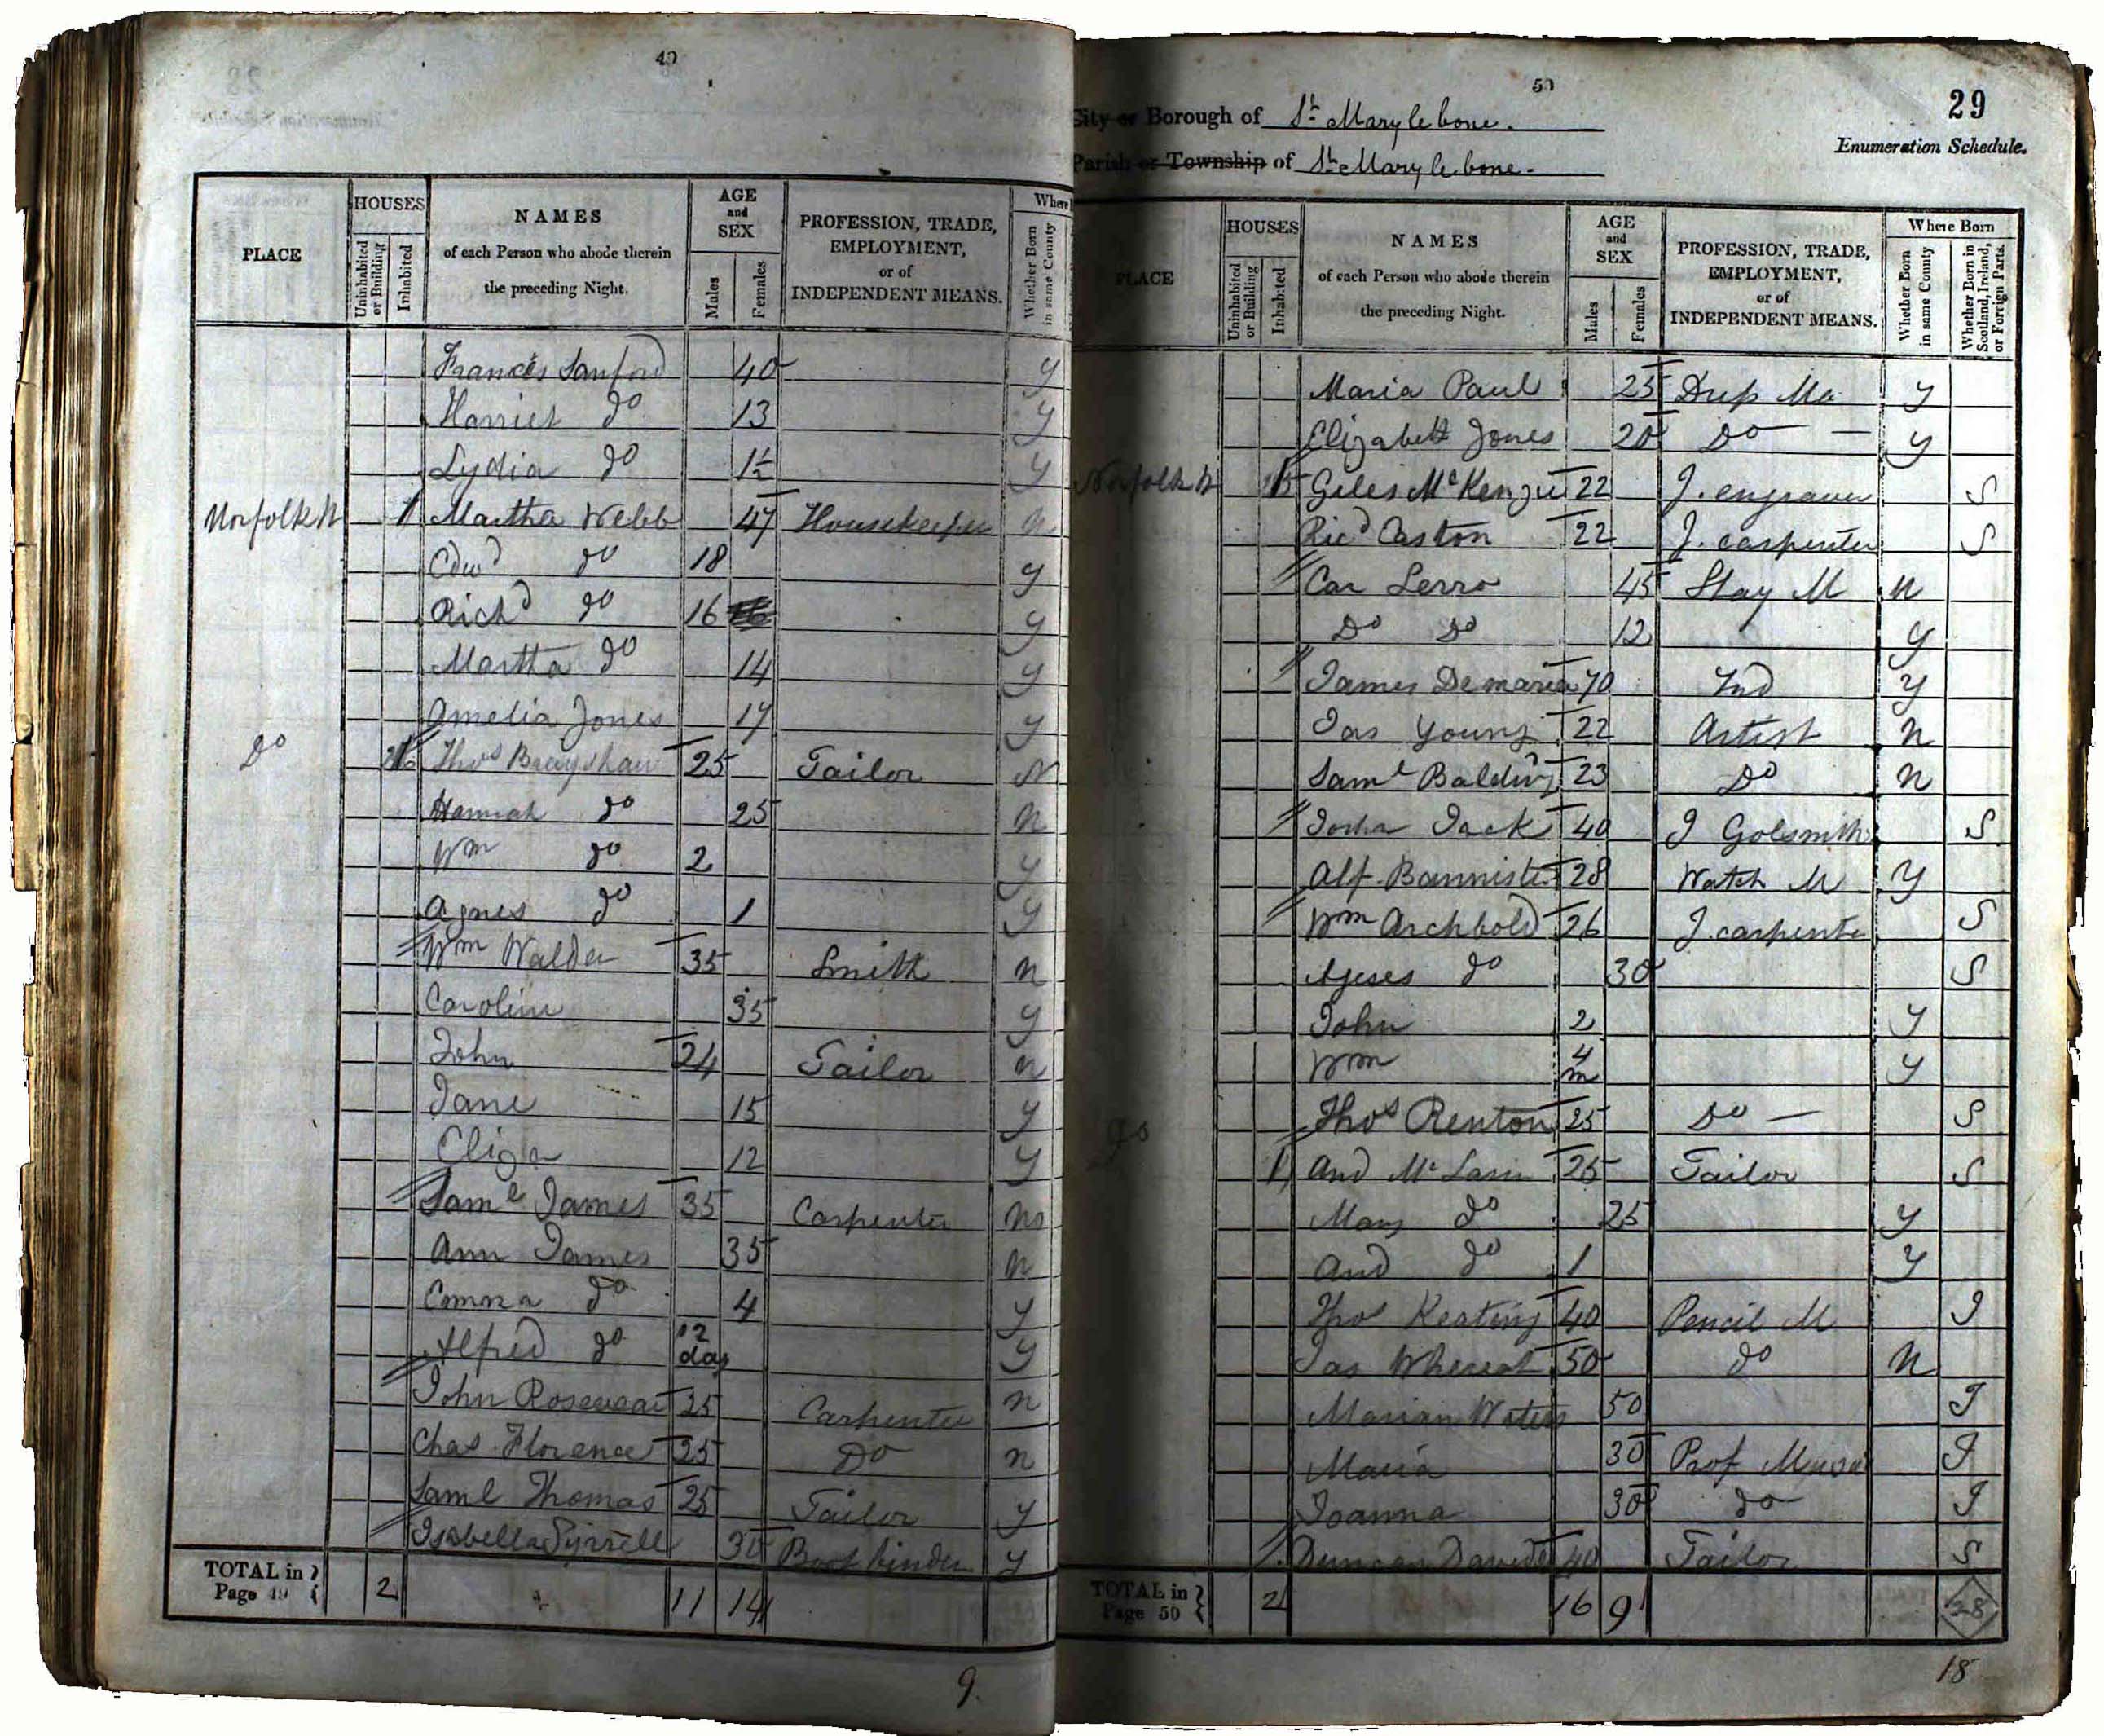 49
PLACE
HOUSES
Uninhabited or Building
Inhabited
NAMES
of each Person who abode therein
the preceding Night.
AGE
and
SEX
Males
Females
PROFESSION, TRADE,
EMPLOYMENT,
or of
INDEPENDENT MEANS.
Where
Whether Born in same County
Frances Sanford 40 y
Harriet do 13 y
Lydia do 1½ y
Norfolk St 1 Martha Webb 47 Housekeeper n
Edwd do 18 y
Richd do 16 y
Martha do 14 y
Amelia Jones 17 y
Do Thos Brayshaw 25 Tailor N
Hannah do 25 n
Wm do 2 y
Agnes do 1 y
Wm Walder 35 Smith n
Caroline 35 y
John 24 Tailor n
Jane 15 y
Eliza 12 y
Saml James 35 Carpenter no
Ann James 35 n
Emma do 4 y
Alfred do 12 day y
John Rosevear 25 Carpenter n
Chas Florence 25 Do n
Saml Thomas 25 Tailor y
Isabella Pyrrell 30 Book binder y
TOTAL in
Page 49 2 11 14
9.
50
29
City or Borough of St Marylebone.
Enumeration Schedule.
Parish or Township of St Marylebone.
PLACE
HOUSES
Uninhabited or Building
Inhabited
NAMES
of each Person who abode therein
the preceding Night.
AGE
and
SEX
Males
Females
PROFESSION, TRADE,
EMPLOYMENT,
or of
INDEPENDENT MEANS.
Where Born
Whether Born in same County
Whether Born in Scotland, Ireland, or Foreign Parts.
Maria Paul 25 Drep Ma y
Elizabeth Jones 20 Do y
Norfolk St Giles McKenzie 22 J. engraver S
Ricd Caston 22 J. carpenter S
Car Lerro 45 Stay M n
Do Do 12 y
James Demaria 70 Ind y
Jas Young 22 Artist n
Saml Balding 23 Do n
Josha Jack 40 J Golsmith S
Alf Bannister 28 Watch M y
Wm Archbold 26 J. carpente S
Agess do 30 S
John 2 y
Wm 4 m y
Thos Renton 25 Do S
do 1 And Mc Lain 25 Tailor S
Mary do 25 y
And do 1 y
Thos Keating 40 Pencil M I
Jas Whereat 50 do n
Marian Waters 50 I
Maria 30 Prof Music I
Joanna 30 do I
Duncan Davids 40 Tailor S
TOTAL in
Page 50 2 16 9 28
18